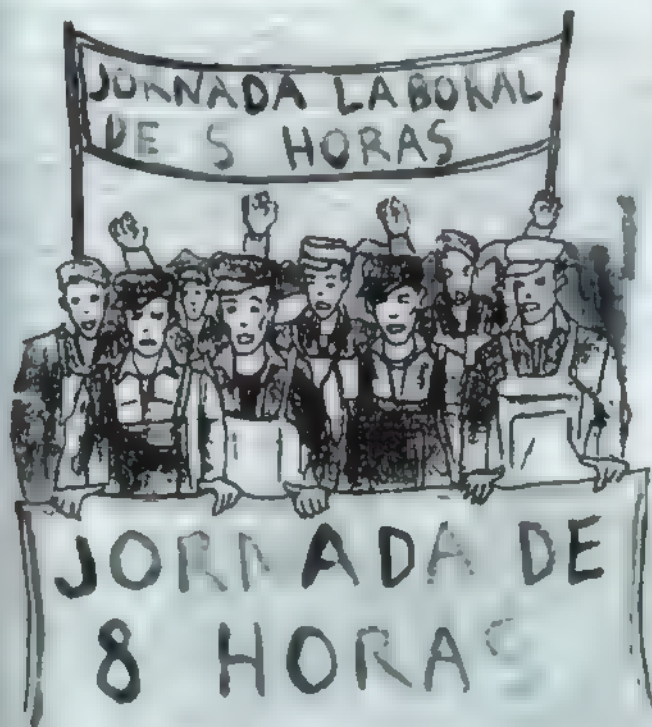 JORNADA LABORAL
DE 5 HORAS
JORNADA DE
8 HORAS